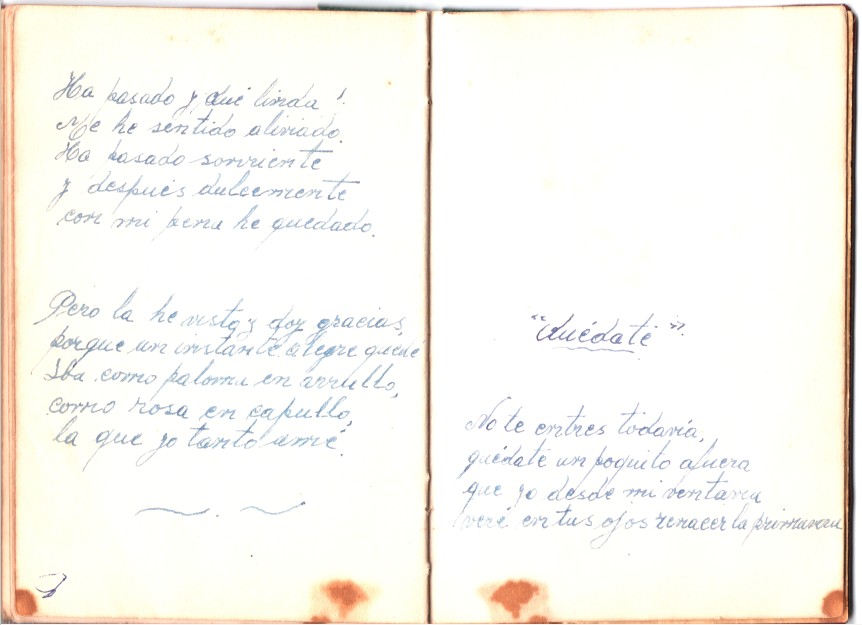 Ha pasado y qué linda!
Me he sentido aliviado.
Ha pasado sonriente
y después dulcemente
con mi pena he quedado.
Pero la he visto y doy gracias,
porque un instante alegre quedé
Iba como paloma en arrullo,
como rosa en capullo,
la que yo tanto amé.
"Quédate".
No te entres todavía,
quédate un poquito afuera
que yo desde mi ventana
veré en tus ojos renacer la primavera